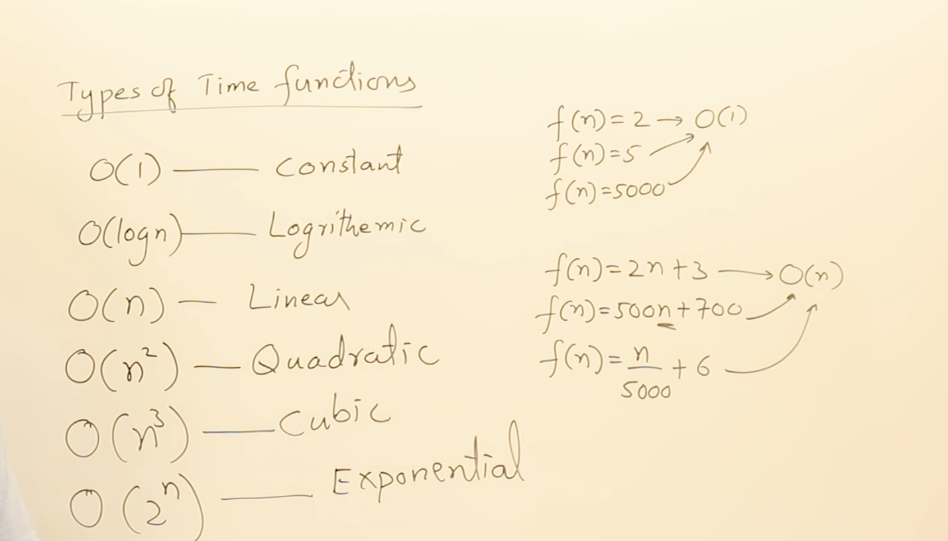 Types of Time functions
O(1) — Constant
O(logn) — Logrithemic
O(n) — Linear
O(n²) — Quadratic
O(n³) — Cubic
O(2ⁿ) — Exponential
f(n)=2 → O(1)
f(n)=5
f(n)=5000
f(n)=2n+3 → O(n)
f(n)=500n+700
f(n)=n/5000+6